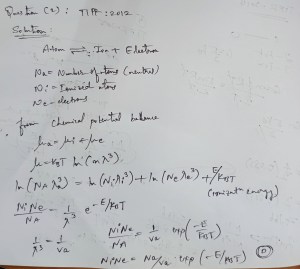 Question (2): TIFR: 2012
Solution:
Atom ⇌ Ion + Electron
Na = Number of atoms (neutral)
Ni = Ionised atoms
Ne - electrons
from chemical potential balance
μa = μi + μe
μ = KBT ln (nλ³)
ln (NA λa³) = ln (Ni λi³) + ln (Ne λe³) + E/KBT
(ionizat energy)
NiNe/NA = 1/λ³ e^-E/KBT
1/λ³ = 1/Va
NiNe/NA = 1/Va exp(-E/KBT)
NiNe = Na/Va exp (-E/KBT)